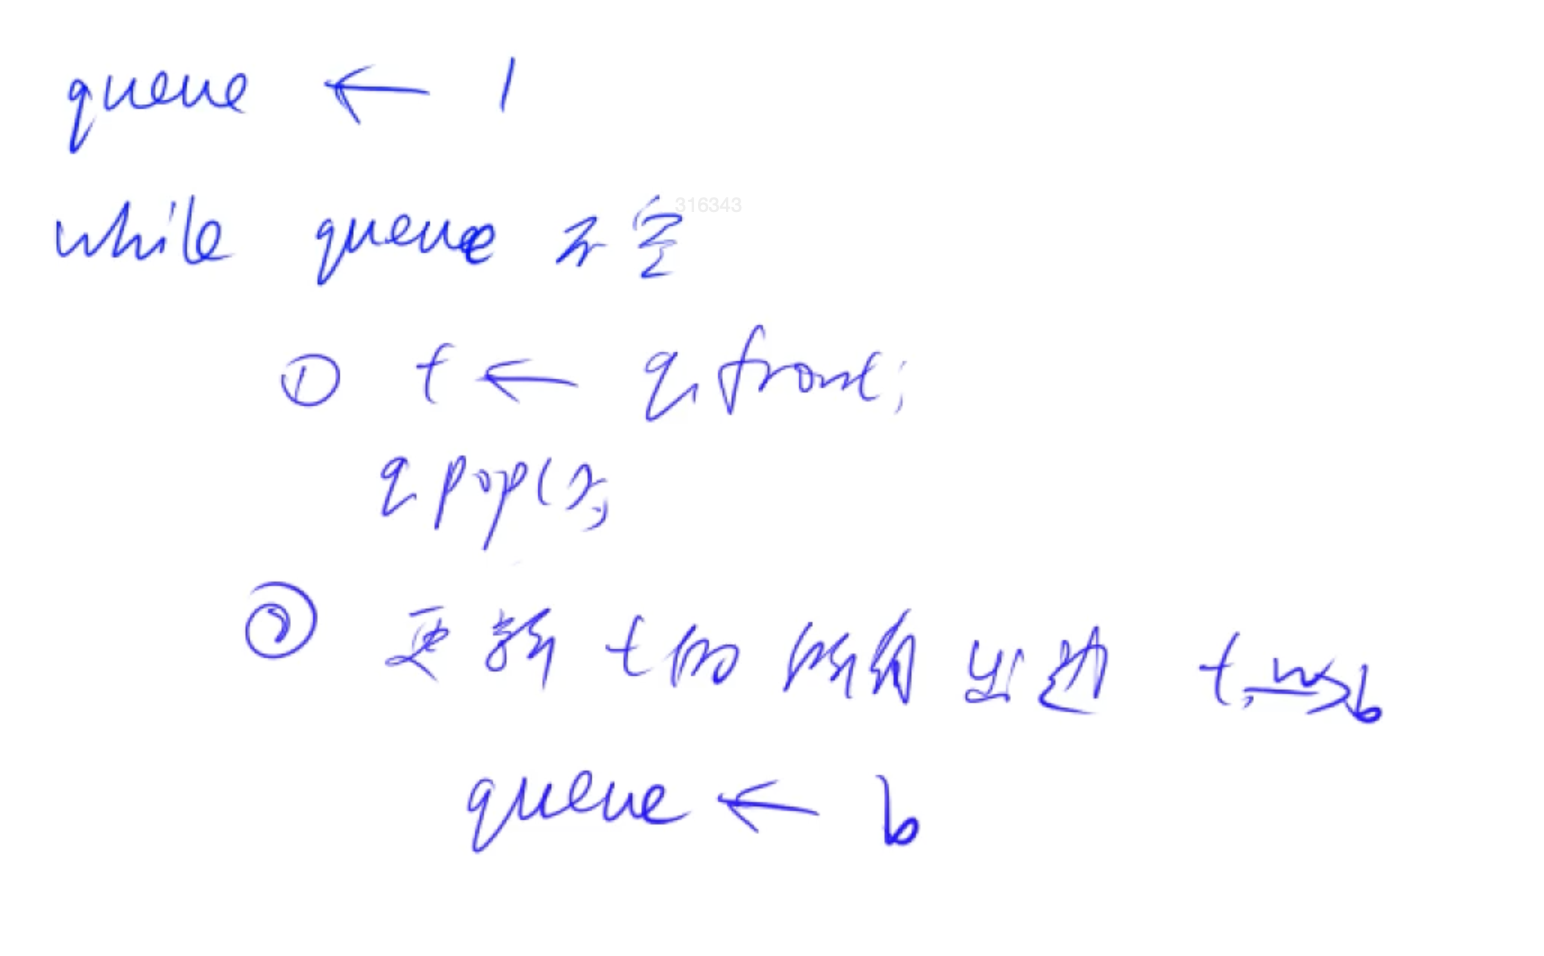 queue ← 1
while queue 不空
316343
① t ← q.front;
q.pop();
② 更新 t的 所有 出边 t, w→b
queue ← b